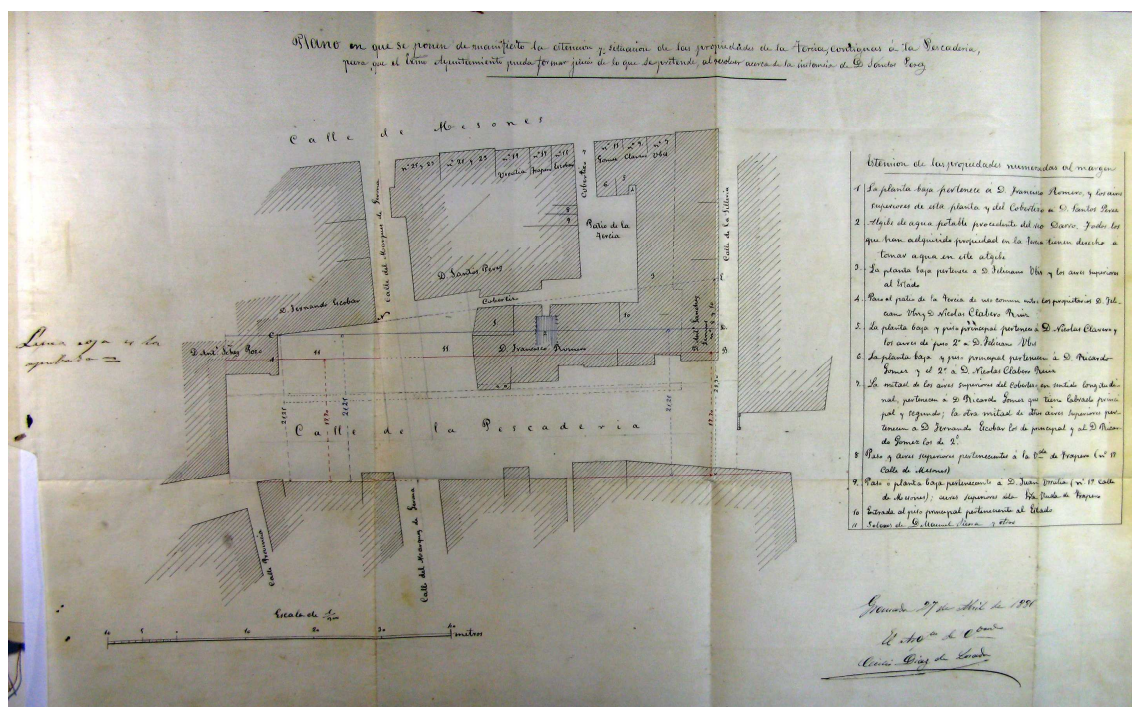 Plano en que se ponen de manifiesto la estencion y situacion de las propiedades de la Tercia, contiguas á la Pescaderia,
para que el Exmo Ayuntamiento pueda formar juicio de lo que se pretende, al resolver acerca de la instancia de D. Santos Perez
Calle de Mesones
nº 21 y 23
nº 19
nº 17
nº 15
nº 11
nº 9
nº 7
Gomez
Clavero
Vbis
Cobertizo
Calle del Marques de Gerona
Patio de la
Tercia
Calle de la Sillería
D. Santos Perez
Cobertizo
D. Fernando Escobar
Linea roja es la
aprobada
D. Francisco Romero
11
11
21,25
21,25
Calle de la Pescaderia
Calle del Marques de Gerona
Escala de
10 5 10 20 30 40 metros
Estencion de las propiedades numeradas al margen
1 La planta baja pertenece á D. Francisco Romero, y los aires
superiores de esta planta y del Cobertizo á D. Santos Perez
2 Algibe de agua potable procedente del rio Darro. Todos los
que han adquirido propiedad en la Tercia tienen derecho a
tomar agua en este algibe
3 La planta baja pertenece á D. Feliciano Vbis y los aires superiores
al Estado
4 Paso al patio de la Tercia de uso comun entre los propietarios D. Feli-
ciano Vbis y D. Nicolas Clabero Ruiz
5 La planta baja y piso principal pertenece á D. Nicolas Clavero y
los aires de piso 2º a D. Feliciano Vbis
6 La planta baja y piso principal pertenecen á D. Ricardo
Gomez y el 2º a D. Nicolas Clabero Ruiz
7 La mitad de los aires superiores del Cobertizo, en sentido longitudi-
nal, pertenecen á D. Ricardo Gomez que tiene labrado princi-
pal y segundo; la otra mitad de dichos aires superiores per-
tenecen a D. Fernando Escobar los de principal y al D. Ricar-
do Gomez los de 2º
8 Paso y aires superiores pertenecientes á la Vda de Trapero (nº 17
Calle de Mesones)
9 Paso ó planta baja perteneciente á D. Juan (nº 19 calle
de Mesones); aires superiores Viuda de Trapero
10 Entrada al piso principal perteneciente al Estado
11 Solares de D. Manuel y otros
Granada 27 de Abril de
Cecilio Diaz de Losada